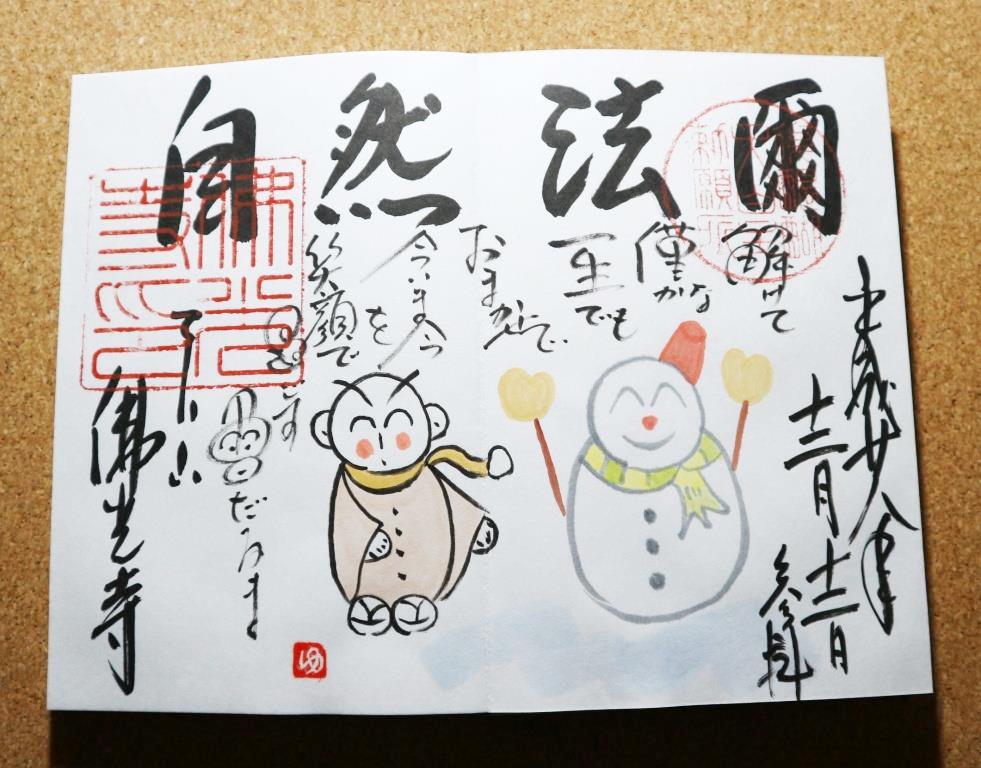 自然法爾
平成廿八年
十二月十二日
参拝
解けて
僅かな
一生でも
おまかせで
今いま今
を
笑顔で
過ごす
雪だるま
佛光寺
佛光寺印
ゆ